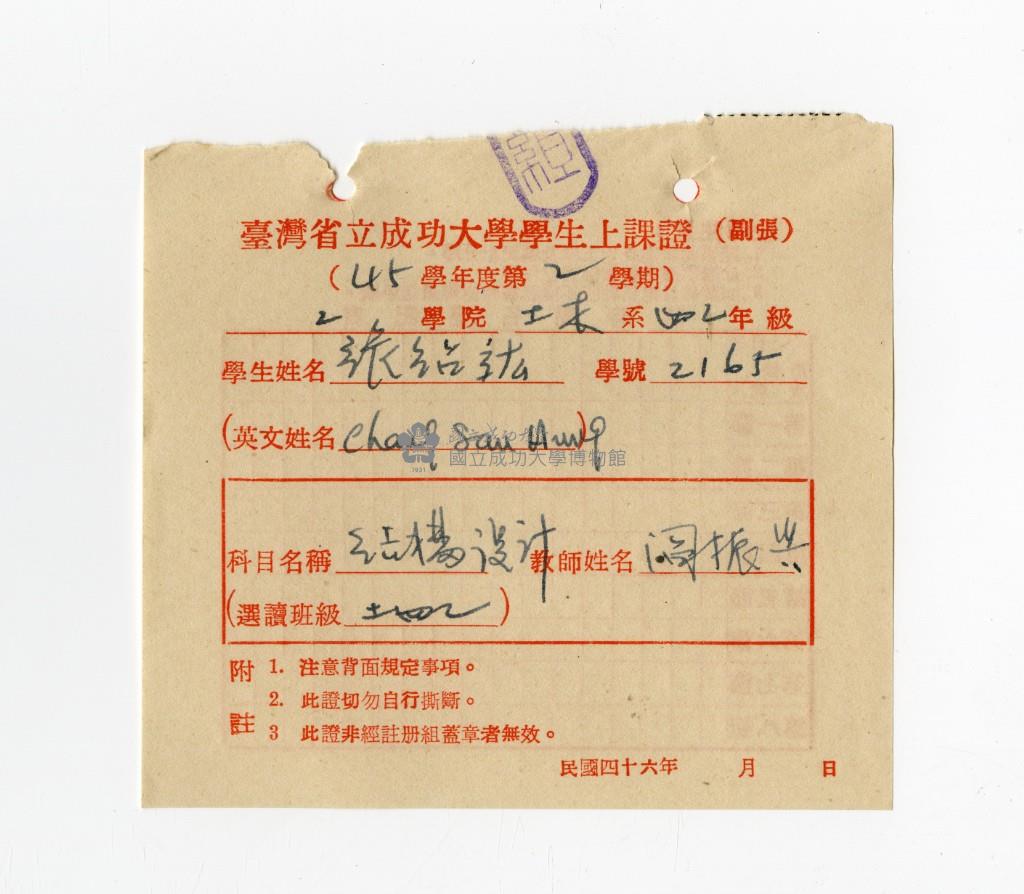 臺灣省立成功大學學生上課證（副張）
（45學年度第2學期）
工學院 土木系 四乙年級
學生姓名 張紹鋐 學號 2165
（英文姓名 Chang Sau Hung）
國立成功大學
國立成功大學博物館
1931
科目名稱 结構设计 教師姓名 閻振兴
（選讀班級 土四乙）
附註
1. 注意背面規定事項。
2. 此證切勿自行撕斷。
3 此證非經註册組蓋章者無效。
民國四十六年 月 日